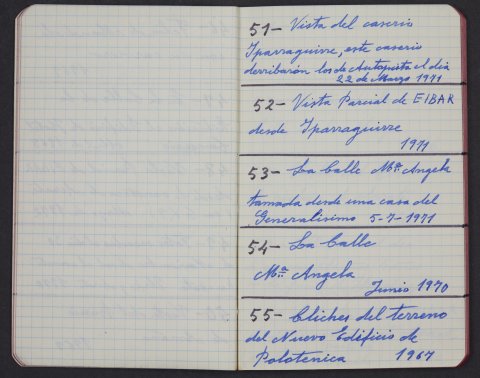 51- Vista del caserio
Iparraguirre, este caserio
derribarón los de Autopista el dia
22 de Marzo 1971
52- Vista Parcial de EIBAR
desde Iparraguirre
1971
53- La Calle Mª Angela
tamada desde una casa del
Generalisimo 5-7-1971
54- La Calle
Mª Angela
Junio 1970
55- Cliches del terreno
del Nuevo Edificio de
Polotenica 1967